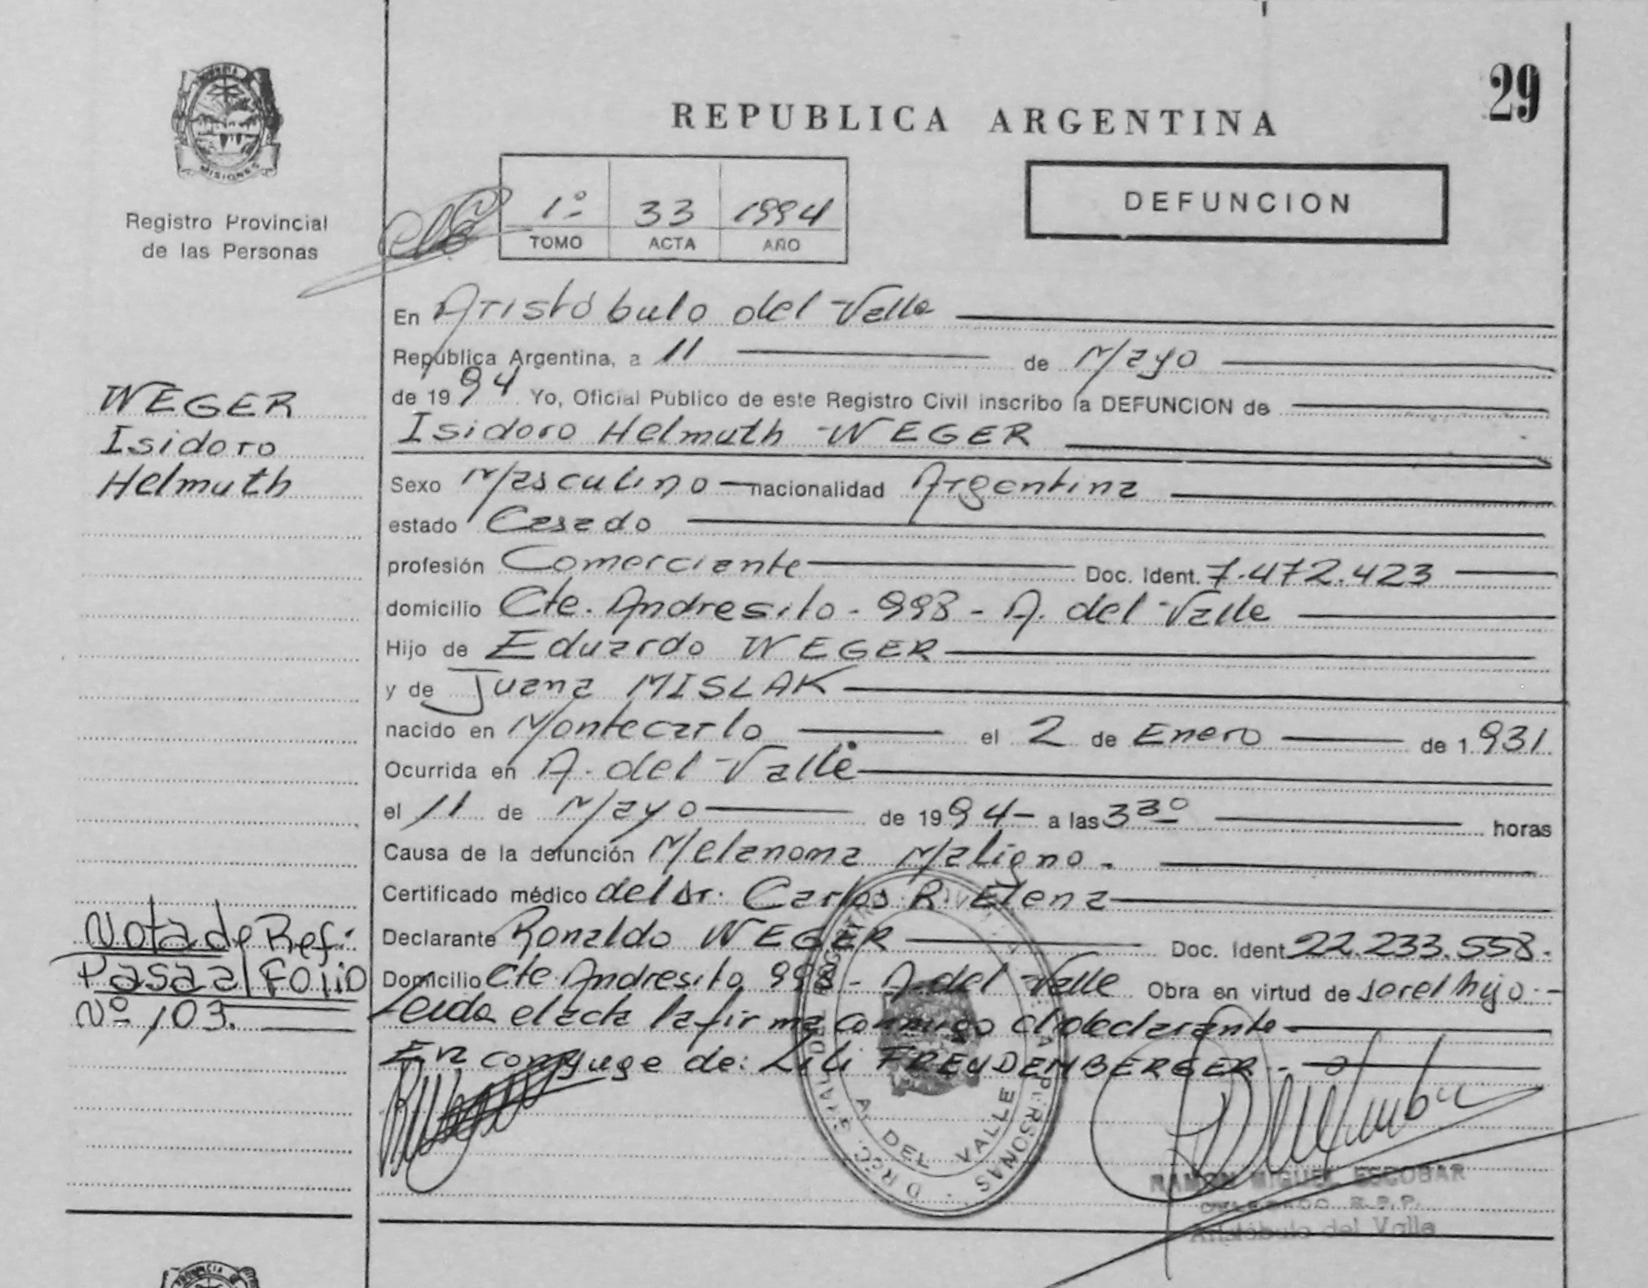 29
REPUBLICA ARGENTINA
DEFUNCION
1º 33 1994
TOMO ACTA AÑO
PROVINCIA DE
MISIONES
Registro Provincial
de las Personas
WEGER
Isidoro
Helmuth
Nota de Ref:
Pasa al Folio
Nº 103.
En Aristóbulo del Valle
República Argentina, a 11 de Mayo
de 1994 Yo, Oficial Público de este Registro Civil inscribo la DEFUNCION de
Isidoro Helmuth WEGER
Sexo Masculino nacionalidad Argentina
estado Casado
profesión Comerciante Doc. Ident. 7.472.423
domicilio Cte. Andresito - 998 - A. del Valle
Hijo de Eduardo WEGER
y de Juana MISLAK
nacido en Montecarlo el 2 de Enero de 1.931.
Ocurrida en A. del Valle
el 11 de Mayo de 1994- a las 3 30 horas
Causa de la defunción Melanoma Maligno.
Certificado médico del Dr. Carlos R. Elena
Declarante Ronaldo WEGER Doc. Ident. 22.233.558.
Domicilio Cte. Andresito 998 - A. del Valle Obra en virtud de ser el hijo
Leida el acta la firma conmigo el declarante
Era conyuge de: Lili FREUDEMBERGER.
A. DEL VALLE
RAMON MIGUEL ESCOBAR
DELEGADO R.P.P.
Aristóbulo del Valle